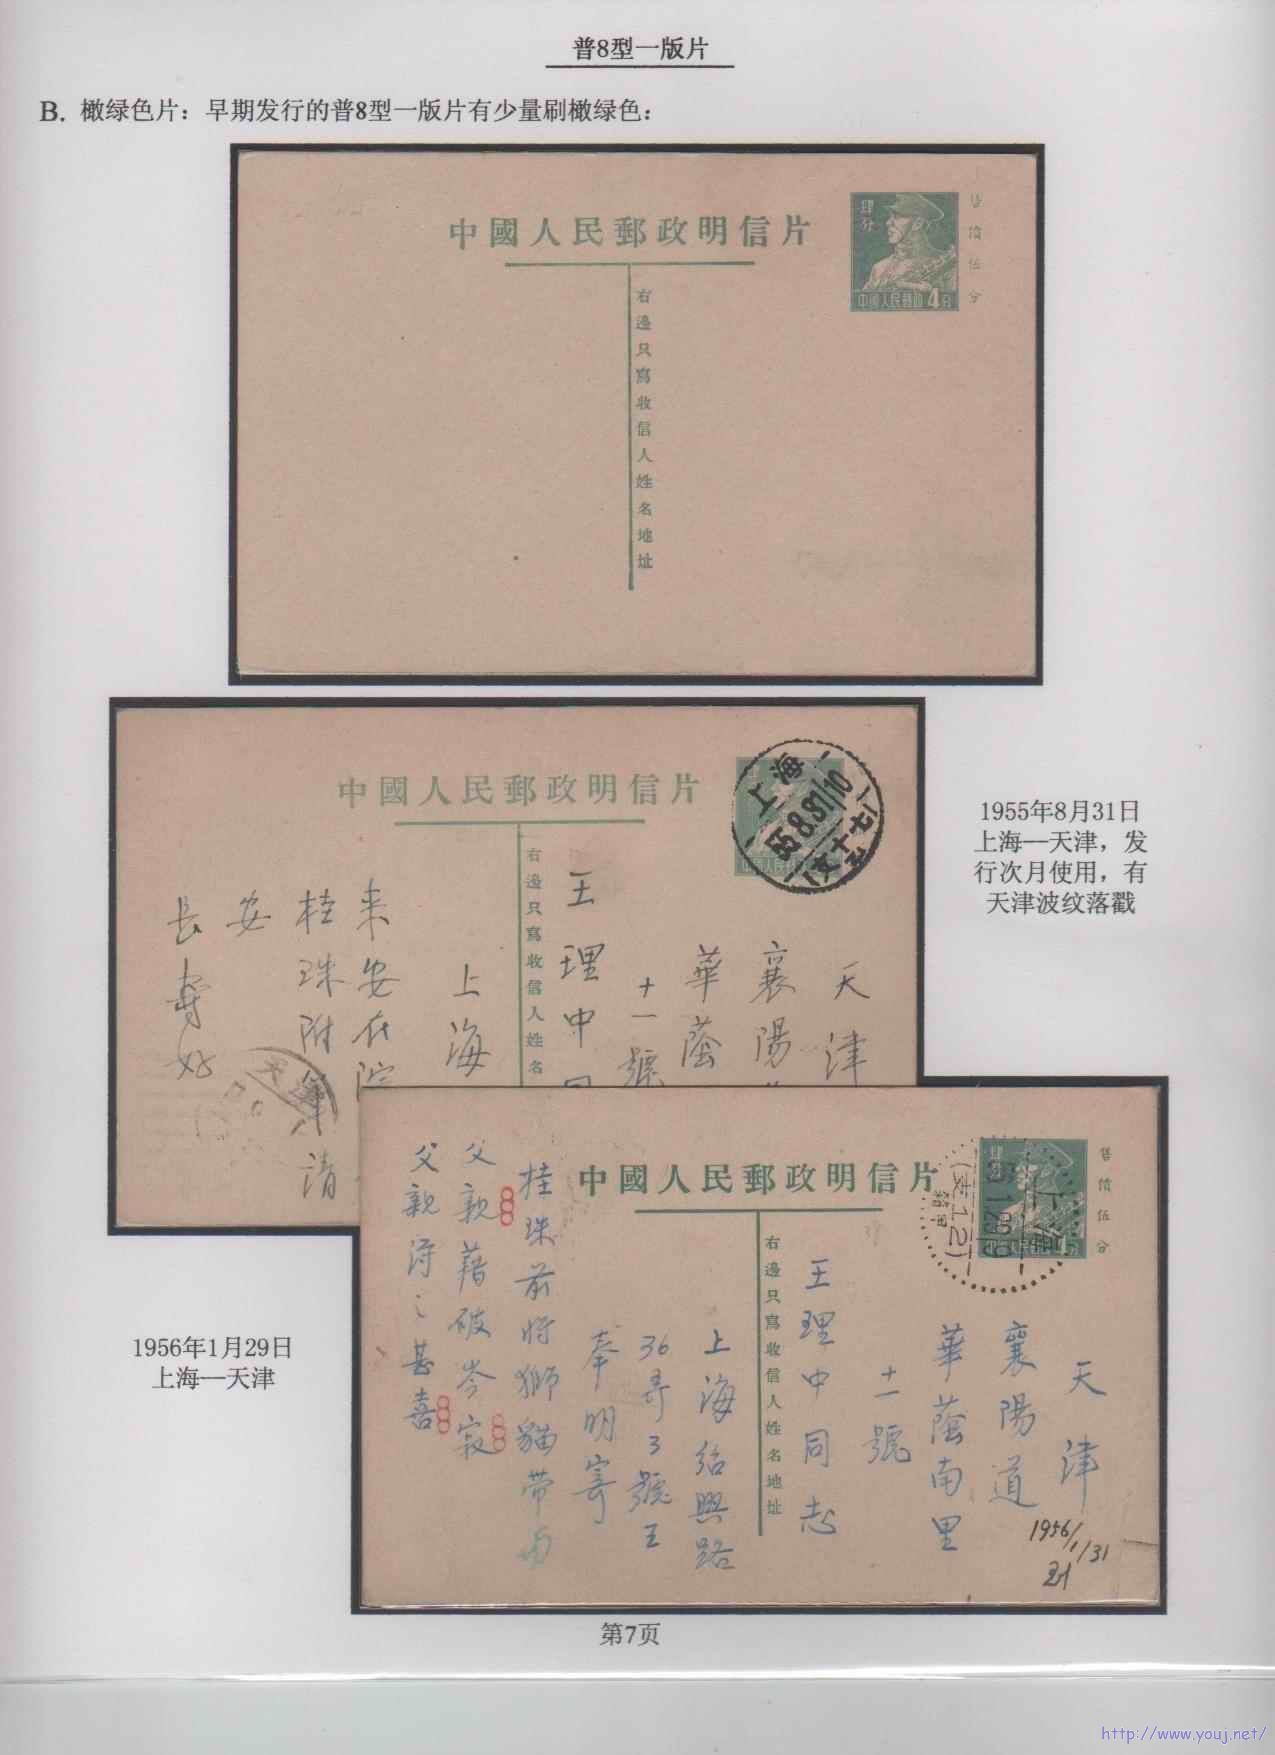 普8型一版片
B. 橄绿色片：早期发行的普8型一版片有少量刷橄绿色：
中國人民郵政明信片
肆分
中國人民郵政 4分
售價伍分
右邊只寫收信人姓名地址
中國人民郵政明信片
上海
55.8.31.10
右邊只寫收信人姓名
天津
襄陽
華蔭
十一號
王理中
上海
来安在院
桂珠附筆請
安
長壽好
天津
1955年8月31日
上海—天津，发
行次月使用，有
天津波纹落戳
中國人民郵政明信片
售價伍分
上海
右邊只寫收信人姓名地址
天津
襄陽道
華蔭南里
十一號
王理中同志
上海紹興路
36弄3號王
奉明寄
桂珠前将獅貓带
父親藉破岑寂
父親得之甚喜
1956/1/31
1956年1月29日
上海—天津
第7页
http://www.youj.net/